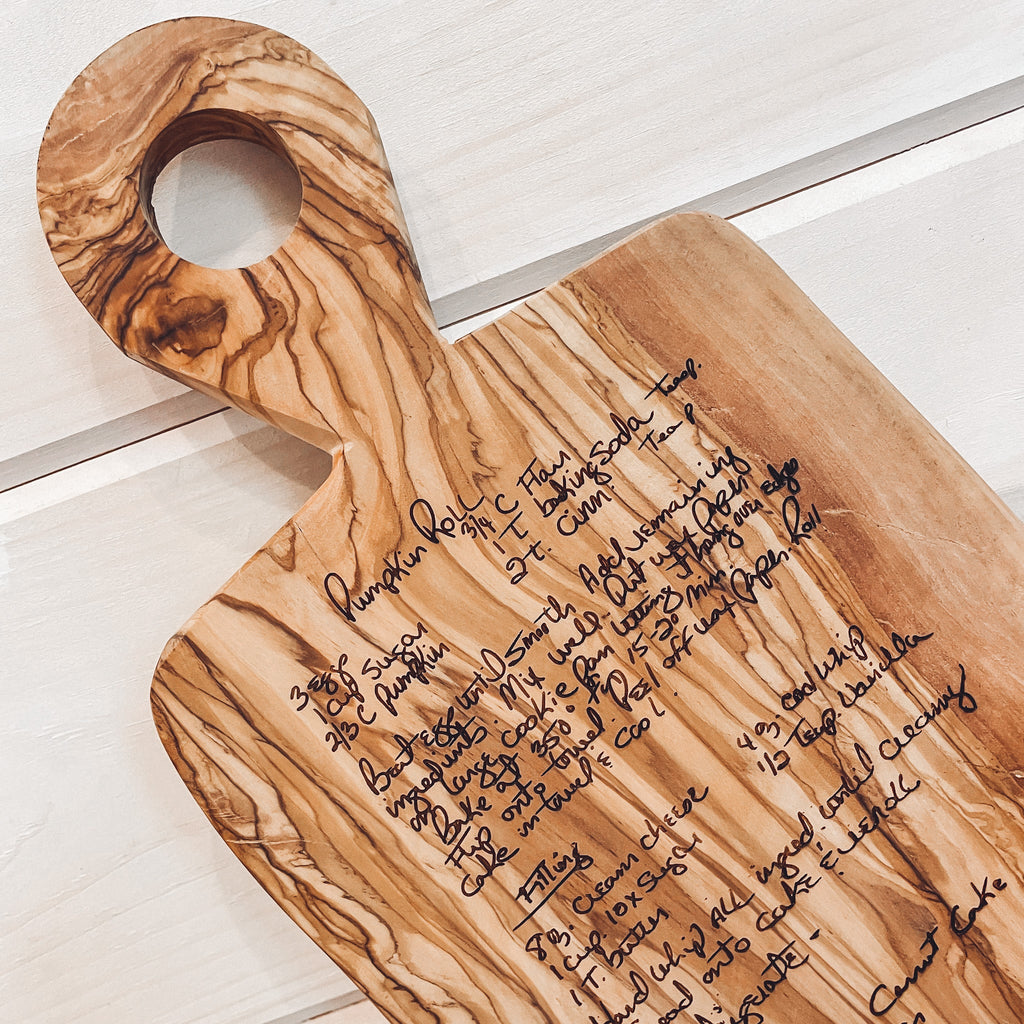 Pumpkin Roll
3 eggs
1 cup sugar
2/3 C pumpkin
3/4 C Flour
1 T baking soda teasp.
2 t. cinn Teasp
Beat eggs until smooth Add remaining
ingredients. Mix well. Put wax paper
on large cookie pan letting it hang over edges
Bake at 350° for 15-20 min.
Flip onto towel. Peel off wax paper. Roll
cake in towel & cool
Filling
8 oz. cream cheese
1 cup. 10x sugar
1 T. butter
4 oz. cool whip
1/2 Teasp. Vanilla
and whip ALL ingred. until creamy
onto cake & reroll
Carrot Cake